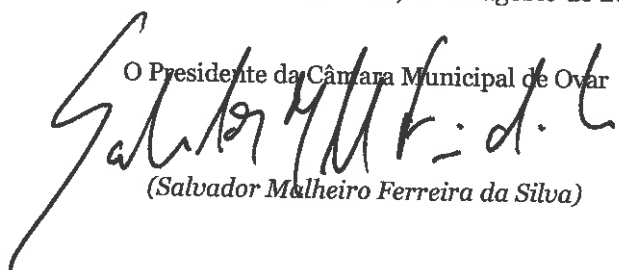 de
O Presidente da Câmara Municipal de Ovar
(Salvador Malheiro Ferreira da Silva)